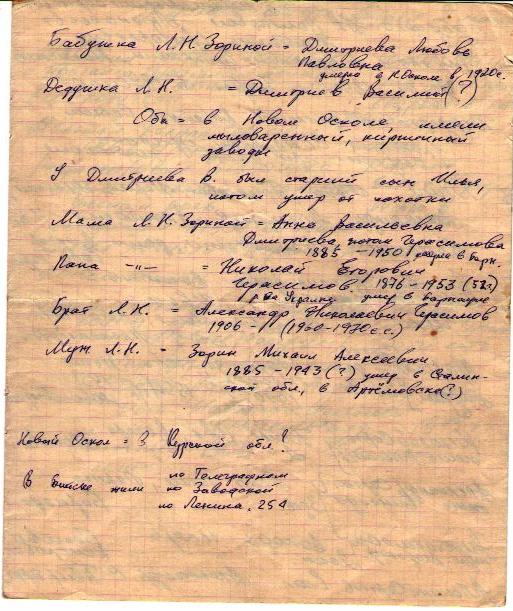 Бабушка Л.Н. Зориной = Дмитриева Любовь
Павловна
умерла в Н.Осколе в 1920г.
Дедушка Л.Н. = Дмитриев Василий (?)
Оба = в Новом Осколе, имели
мыловаренный, кирпичный
заводы
У Дмитриева В был старший сын Илья,
потом умер от чахотки
Мама Л.Н. Зориной = Анна Васильевна
Дмитриева, потом Герасимова
1885 - 1950 в Барн.
Папа -"- = Николай Егорович
Герасимов 1876 - 1953
на Украине умер в Барнауле
Брат Л.Н. = Александр Николаевич Герасимов
1906 - (1960-1970г.г.)
Муж Л.Н. - Зорин Михаил Алексеевич
1885 - 1943 (?) умер в Сталин-
ской обл, в Артёмовске (?)
Новый Оскол = Курской обл?
В Бийске жили по Телеграфном
по Заводской
по Ленина, 254